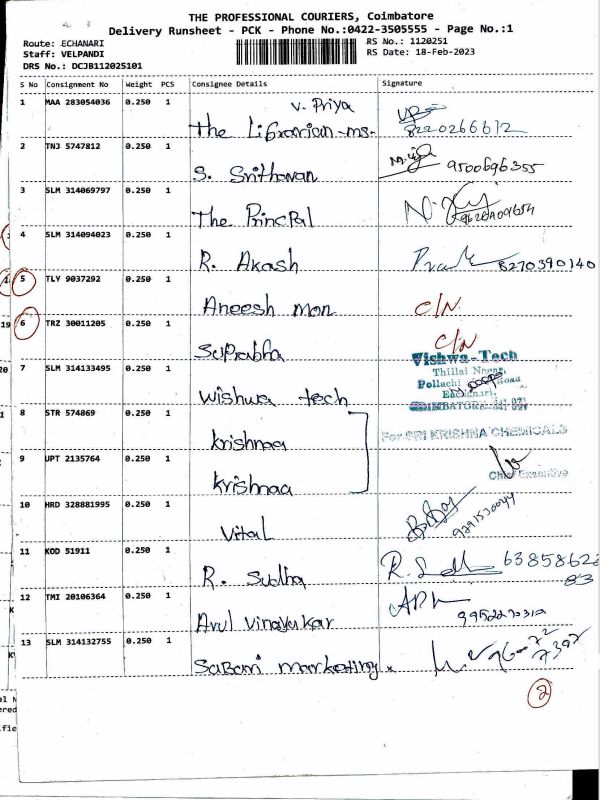 THE PROFESSIONAL COURIERS, Coimbatore
Delivery Runsheet - PCK - Phone No.:0422-3505555 - Page No.:1
Route: ECHANARI
Staff: VELPANDI
DRS No.: DCJB112025101
RS No.: 1120251
RS Date: 18-Feb-2023
S No Consignment No Weight PCS Consignee Details Signature
1 MAA 283054036 0.250 1 V. Priya
The Librarian-ms- 8220266612
2 TNJ 5747812 0.250 1
S. Srithavan 9500696355
3 SLM 314069797 0.250 1
The Principal
4 SLM 314094023 0.250 1
R. Akash 8270390140
5 TLY 9037292 0.250 1
Aneesh mon C/N
6 TRZ 30011205 0.250 1
Suprabha C/N
7 SLM 314133495 0.250 1 Vishwa-Tech
Thillai Nagar,
Pollachi Road
Eachanari,
Wishwa tech COIMBATORE
8 STR 574869 0.250 1
krishnaa For SRI KRISHNA CHEMICALS
9 UPT 2135764 0.250 1
krishnaa Chief Executive
10 HRD 328881995 0.250 1
Vital
11 KOD 51911 0.250 1
R. Subha 63858622
83
12 TMI 20106364 0.250 1
Arul Vinayakar
13 SLM 314132755 0.250 1
Sabari marketing
2